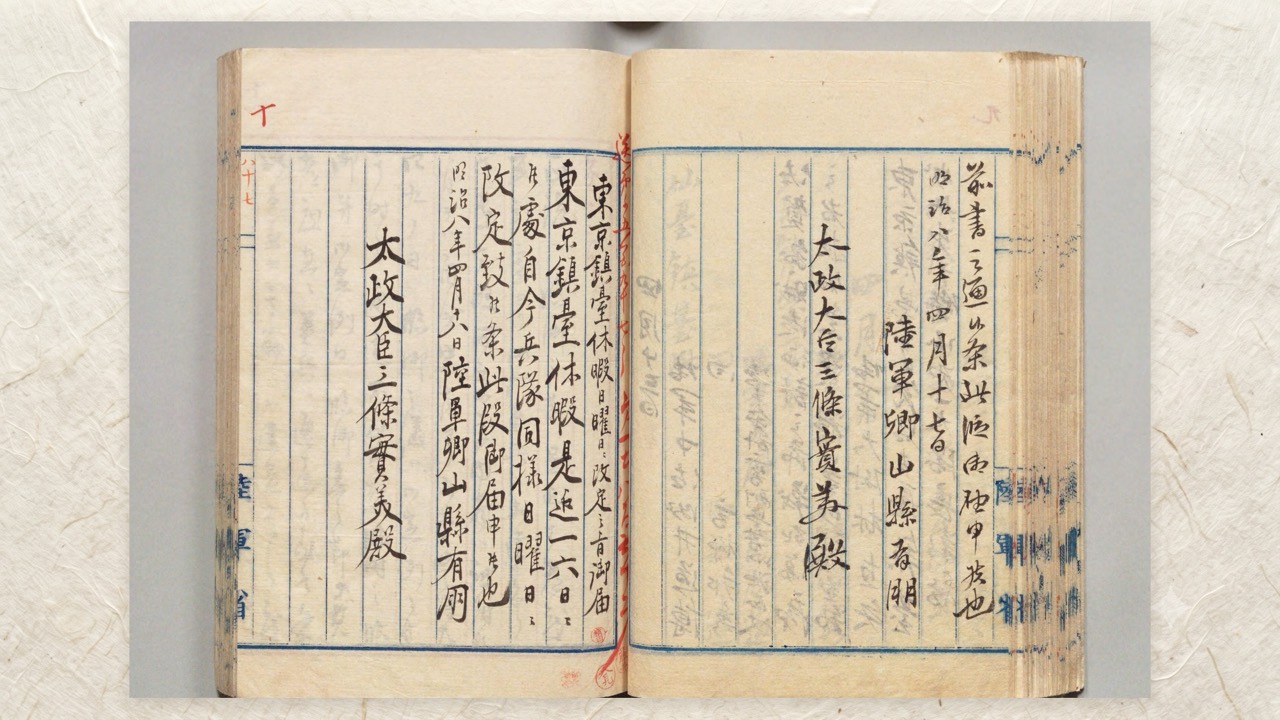 前書之通候条此段御届申候也
明治八年四月十七日
陸軍卿山縣有朋
太政大臣三條實美殿
九
東京鎮臺休暇日曜日ニ改定之旨御届
東京鎮臺休暇是迄一六日ニ
候處自今兵隊同様日曜日ニ
改定致候条此段御届申候也
明治八年四月十八日陸軍卿山縣有朋
太政大臣三條實美殿
十
八十七
陸軍省